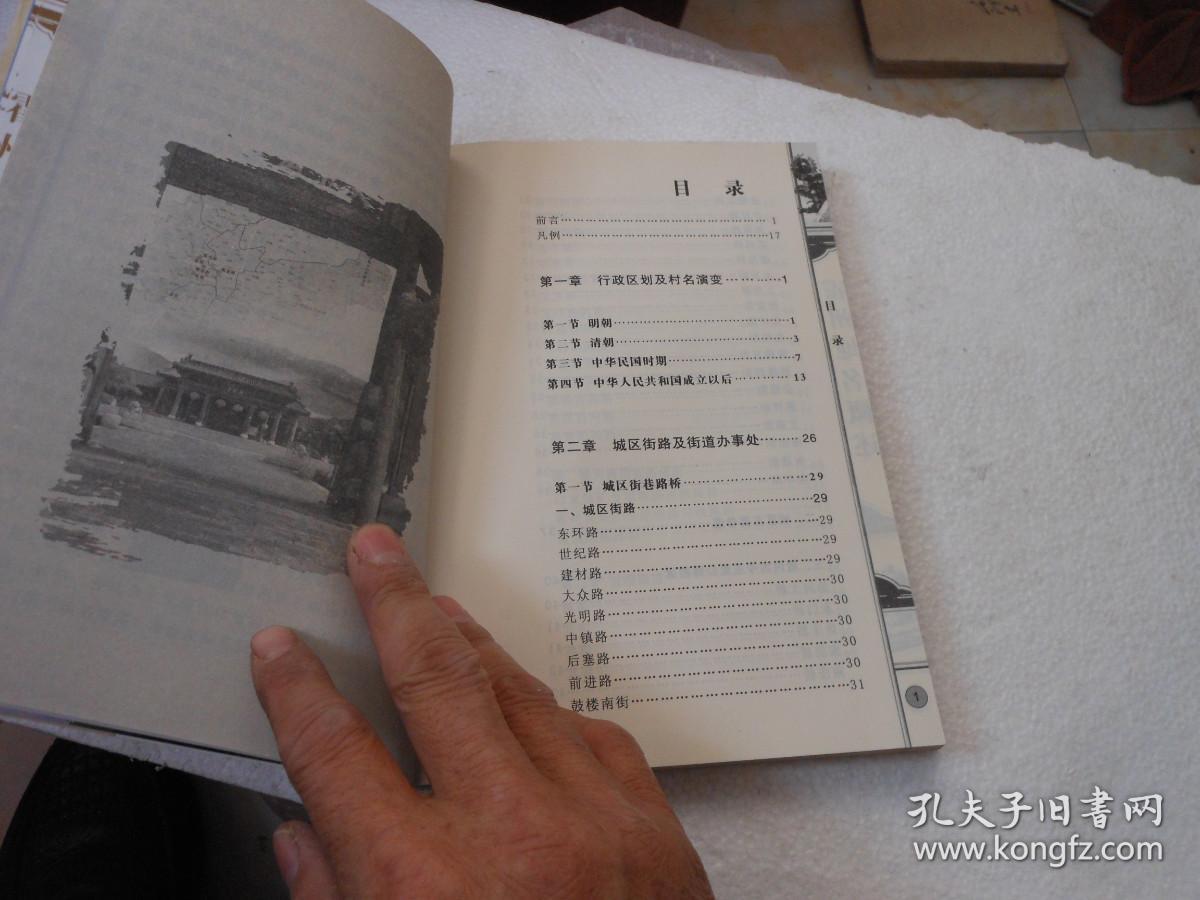 目 录
前言…………………………………………1
凡例…………………………………………17
第一章 行政区划及村名演变…………1
第一节 明朝……………………………………1
第二节 清朝……………………………………3
第三节 中华民国时期…………………………7
第四节 中华人民共和国成立以后…………13
第二章 城区街路及街道办事处………26
第一节 城区街巷路桥………………………29
一、城区街路…………………………………29
东环路…………………………………………29
世纪路…………………………………………29
建材路…………………………………………29
大众路…………………………………………30
光明路…………………………………………30
中镇路…………………………………………30
后塞路…………………………………………30
前进路…………………………………………30
鼓楼南街………………………………………31
目
录
1
孔夫子旧书网
www.kongfz.com